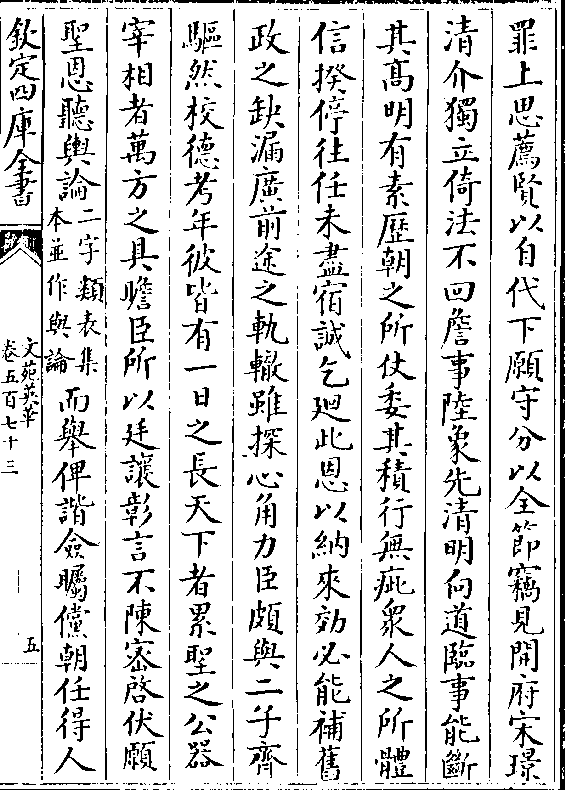 罪上思薦賢以自代下願守分以全節竊見開府宋璟
清介獨立倚法不回詹事陸象先清明向道臨事能斷
其髙明有素歴朝之所仗委其積行無疵衆人之所體
信揆停往任未盡宿誠乞廻此恩以納來効必能補舊
政之缺漏廣前途之軌轍雖探心角力臣頗與二子齊
驅然校德考年彼皆有一日之長天下者累聖之公器
宰相者萬方之具瞻臣所以廷讓彰言不陳密啓伏願
聖恩聽輿論二字類表集本並作與論而舉俾諧僉矚儻朝任得人
欽定四庫全書
文苑英華
卷五百七十三
五